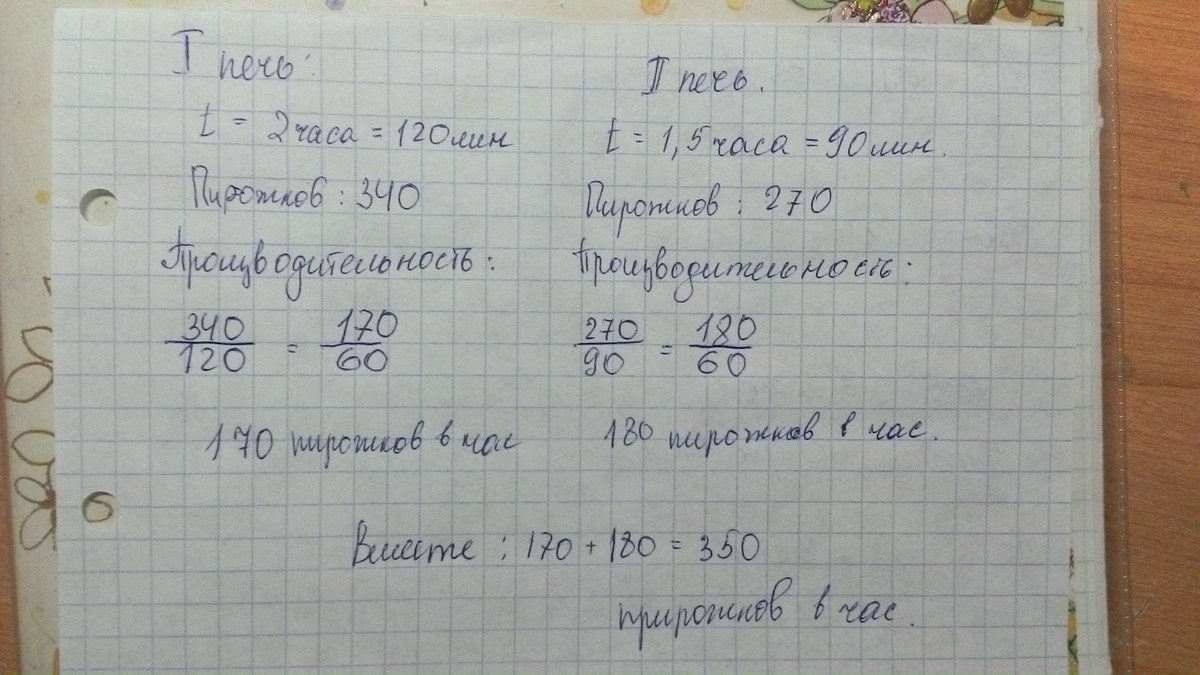 I печь:
t = 2 часа = 120 мин
Пирожков : 340
Производительность :
340/120 = 170/60
170 пирожков в час
II печь.
t = 1,5 часа = 90 мин.
Пирожков : 270
Производительность :
270/90 = 180/60
180 пирожков в час.
Вместе : 170 + 180 = 350
прирожков в час.